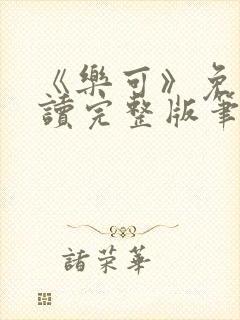 《樂可》免
讀完整版筆
諸榮華